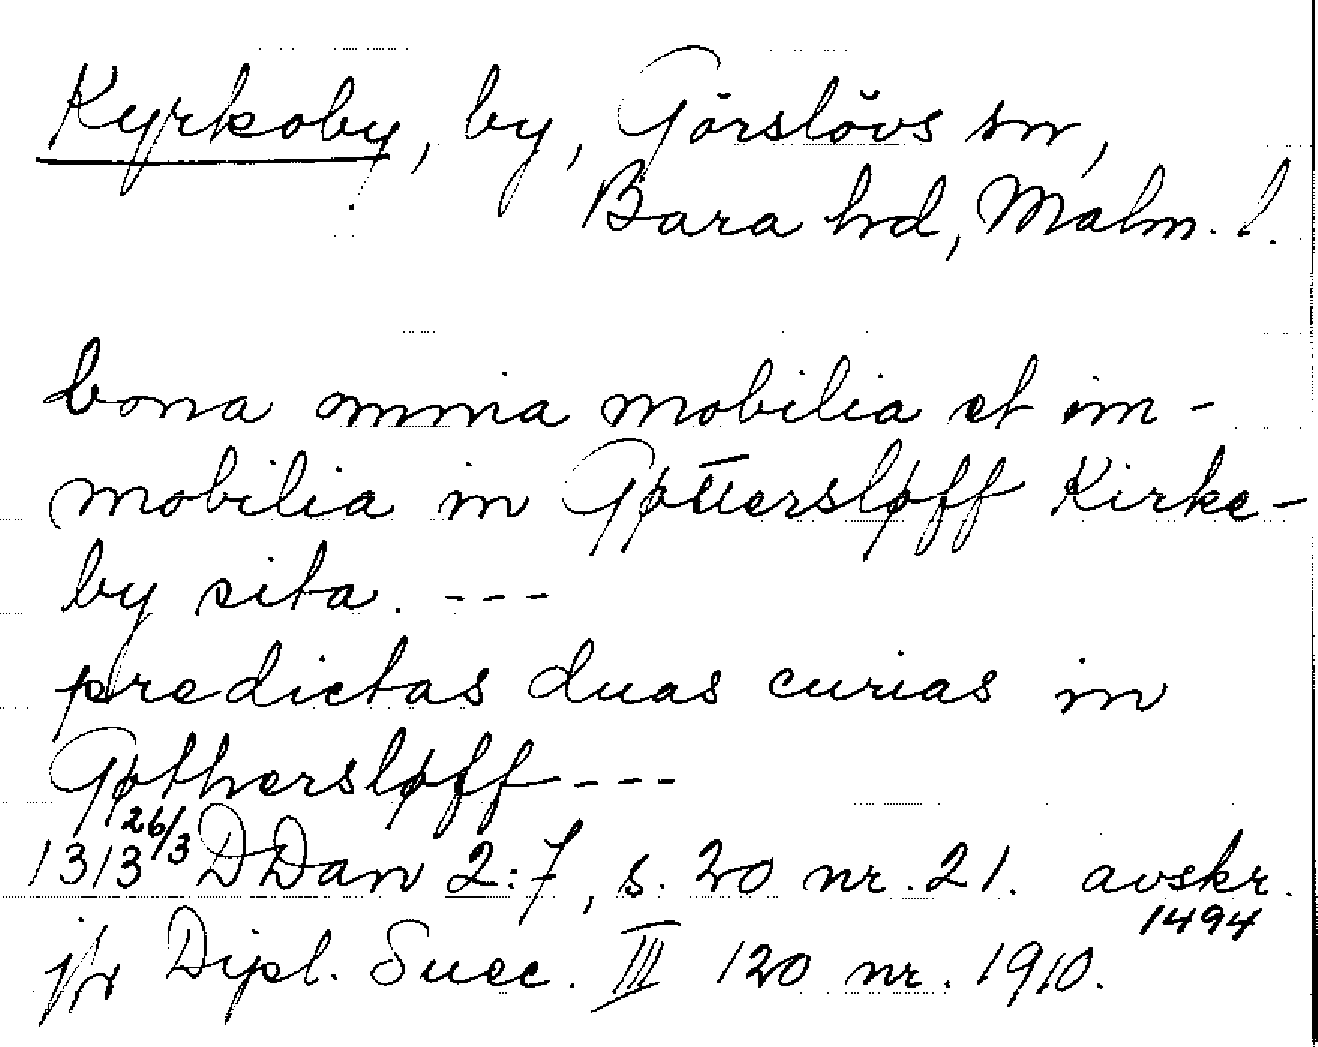 Kyrkoby, by, Görslövs sn,
Bara hd, Malm. l.
bona omnia mobilia et im-
mobilia in Gøttersløff Kirke-
by sita. ---
predictas duas curias in
Gøthersløff ---
1313 26/3 DDan 2:7, s. 20 nr. 21. avskr. 1494
jfr Dipl. Suec. III 120 nr. 1910.